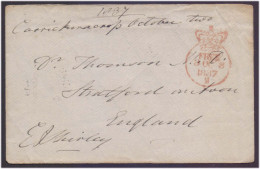 1837
Carrickmacross October two
Dr. Thomson M.D.
Stratford on Avon
England
E J Shirley